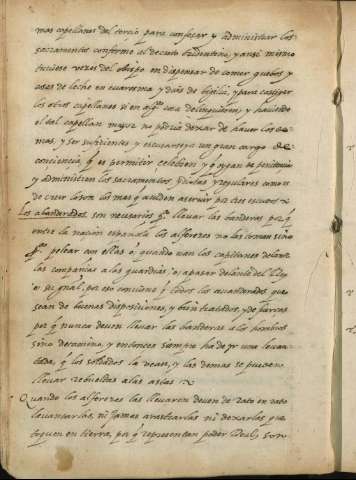 mas capellanes del tercio para confesar y administrar los
sacramentos conforme al decreto tridentino, y ansi mismo
tuviese vezes del obispo en dispensar de comer guebos y
cosas de leche en cuaresma y dias de bigilia, y para castigar
los otros capellanes si en algo delinquiesen, y haviendo
el tal capellan mayor no podria dexar de haver los de
mas, y ser suficientes, y escusarseya un gran cargo de
conciencia, q es permitir celebren y oygan de penitencia
y administren los sacramentos, y regulares como
de creer son los mas q acuden a servir por tres escudos
los abanderados son necesarios pa llevar las banderas por q
entre la nacion española los alferezes no las toman sino
pa pelear con ellas o quando van los capitanes delante
las compañias a las guardias o a pasar delante del Rey
o su gñal, por eso conviene q todos los abanderados que
sean de buenas disposiciones, y bien tratados, y de fuerças
por q nunca deven llevar las banderas a los hombros
sino derecha, y entonces siempre ha de yr una levan
tada, q los soldados la vean, y las demas se pueden
llevar rebueltas a las astas
Quando los alferezes las llevaren deven de rato en rato
levantarlas, ni jamas arrastrarlas ni dexarlas que
toquen en tierra, por q representan poder Real, y son